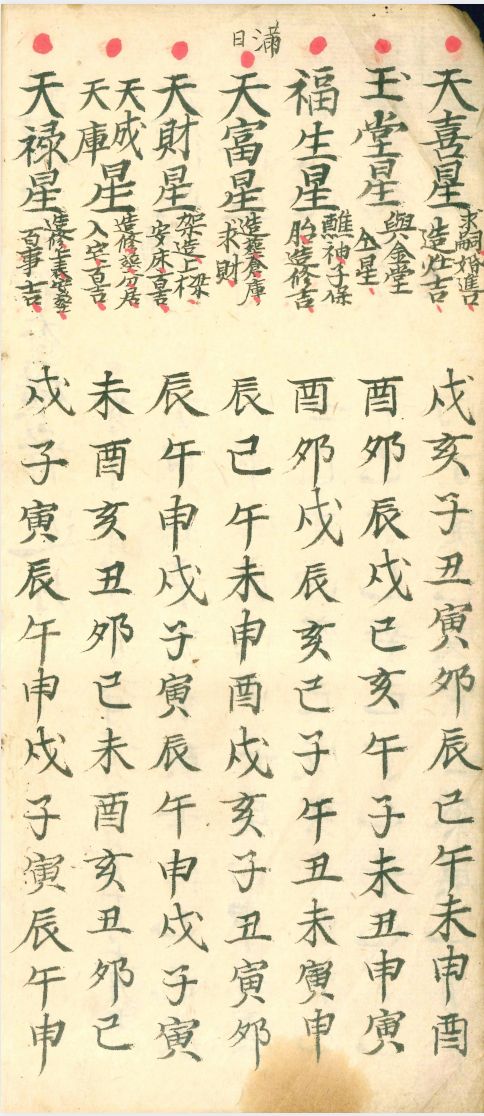 天喜星 求嗣婚進口 造灶吉 戌亥子丑寅卯辰巳午未申酉
玉堂星 與金堂 仝星 酉卯辰戌巳亥午子未丑申寅
福生星 醮神子保 胎造修吉 酉卯戌辰亥巳子午丑未寅申
滿日
天富星 造葬倉庫 求財 辰巳午未申酉戌亥子丑寅卯
天財星 架造上樑 安床百吉 辰午申戌子寅辰午申戌子寅
天成 天庫 星 造修葬分居 入宅百吉 未酉亥丑卯巳未酉亥丑卯巳
天禄星 造修上表安葬 百事吉 戌子寅辰午申戌子寅辰午申